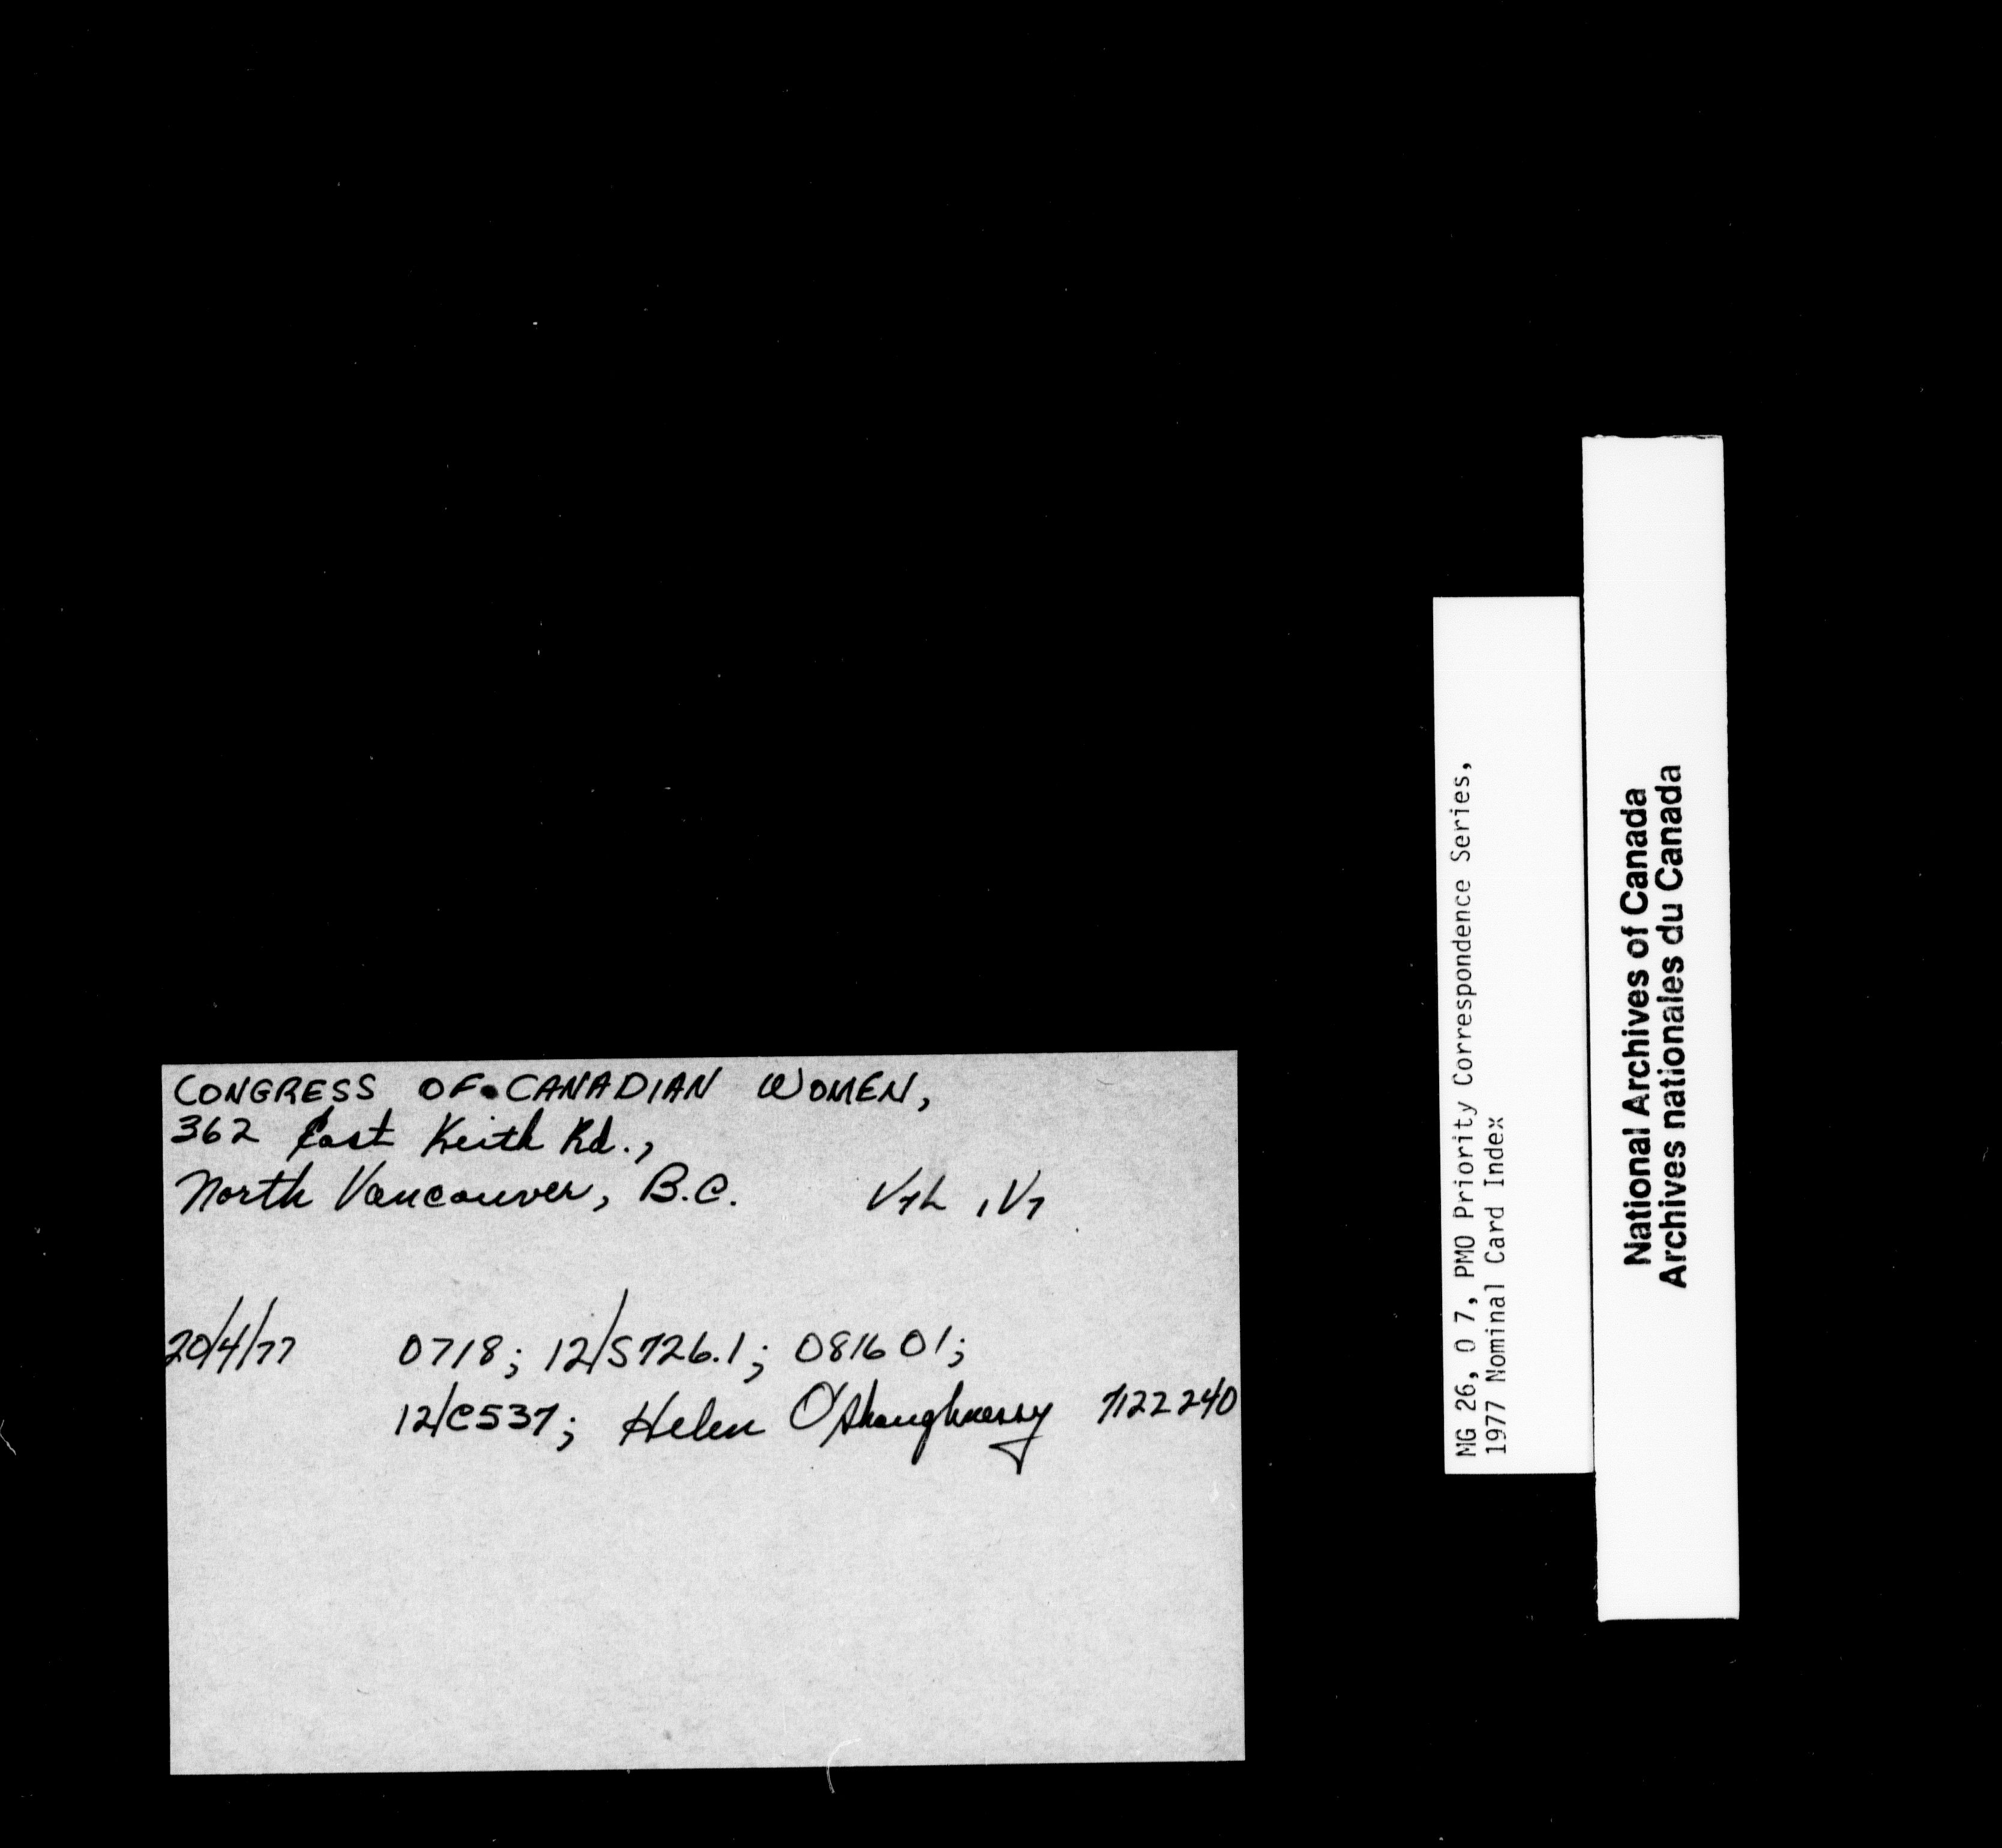 CONGRESS OF CANADIAN WOMEN,
362 East Keith Rd.,
North Vancouver, B.C. V7L 1V7
20/4/77 0718; 12/S726.1; 081601;
12/C537; Helen O'Shaughnessy 7122240
MG 26, O 7, PMO Priority Correspondence Series,
1977 Nominal Card Index
National Archives of Canada
Archives nationales du Canada